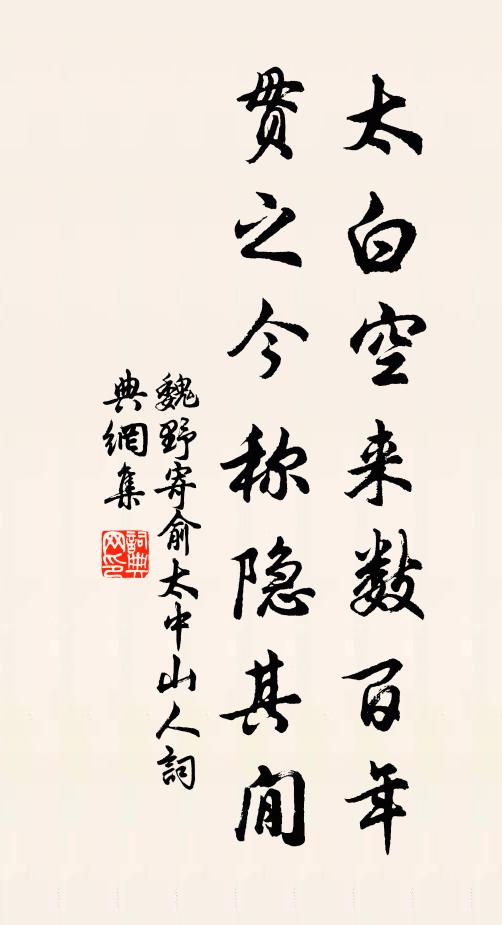 太白空来数百年
贯之今称隐其间
魏野寄俞太中山人詞
典網集
詞典
网印